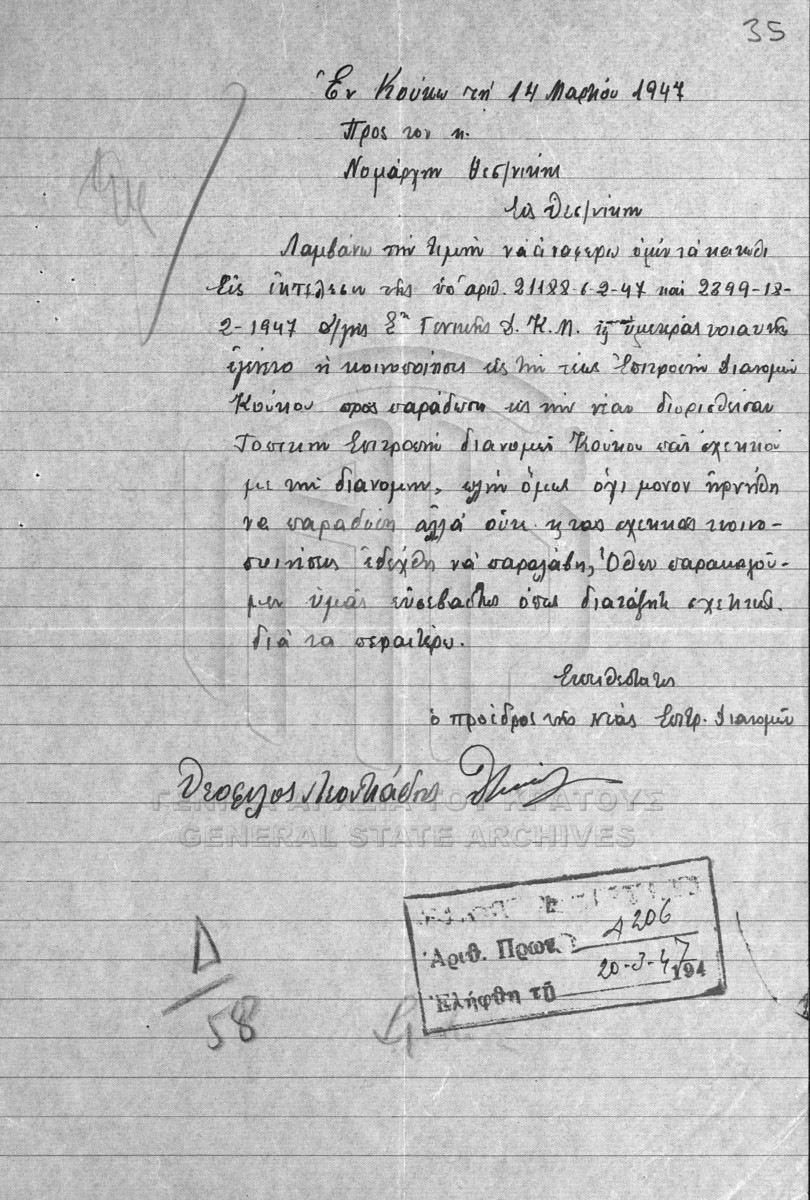 35
Ἐν Κούκω τῇ 14 Μαρτίου 1947
Προς τον κ.
Νομάρχην Θεσ/νικης
Εις Θεσ/νικην
Λαμβάνω την τιμην να αναφερω υμιν τά κατωθι
Εις ἐκτελεσιν της ὑπ' αριθ. 21188-6-2-47 και 2899-18-
2-1947 δ/γης Γενικης Δ. Κ. Μ. ὑμετερας
ἐγενετο ἡ κοινοποίησις εις την τέως Επιτροπήν Διανομων
Κούκου προς παράδωσιν εις την νεαν διορισθεισαν
Τοπικην Επιτροπήν διανομων Κούκου παν σχετικον
με την διανομην, πλην ὅμως ὄχι μονον ἠρνήθη
να παραδώση ἀλλά οὔτε τας σχετικας κοινο-
ποιησεις ἐδεχθη νά παραλάβη, Ὅθεν παρακαλοῦ-
μεν ὑμᾶς εὐσεβαστως ὅπως διατάξητε σχετικως
διά τα περαιτέρω.
Ευπιθεστατος
ὁ πρόεδρος της Νέας Επιτρ. Διανομων
Θεοφιλος
ΓΕΝΙΚΑ ΑΡΧΕΙΑ ΤΟΥ ΚΡΑΤΟΥΣ
GENERAL STATE ARCHIVES
Δ
58
Ἀριθ. Πρωτ. Δ 206
Ἐλήφθη τῇ 20-3-47 194